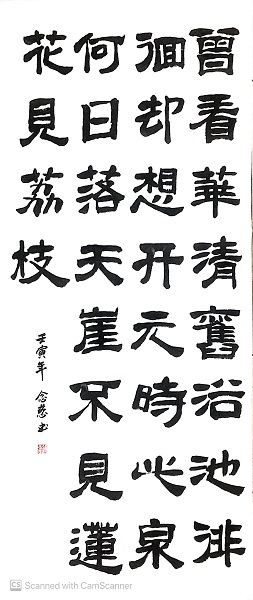 曾看華清舊浴池徘
徊却想开元時此泉
何日落天崖不見蓮
花見荔枝
壬寅年 念慈书
CS Scanned with CamScanner